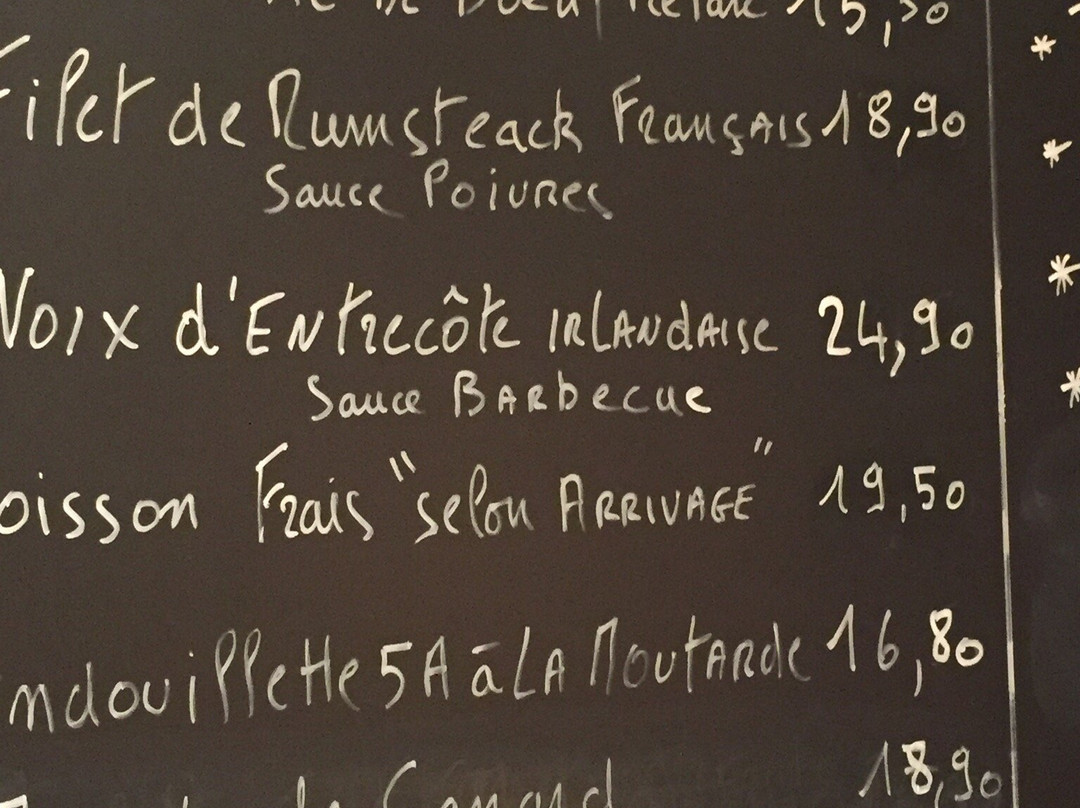 de Boeuf 15,50
Filet de Rumsteack Français 18,90
Sauce Poivres
Noix d'Entrecôte irlandaise 24,90
Sauce Barbecue
oisson Frais "selon ARRIVAGE" 19,50
ndouillette 5A à LA Moutarde 16,80
de Canard 18,90